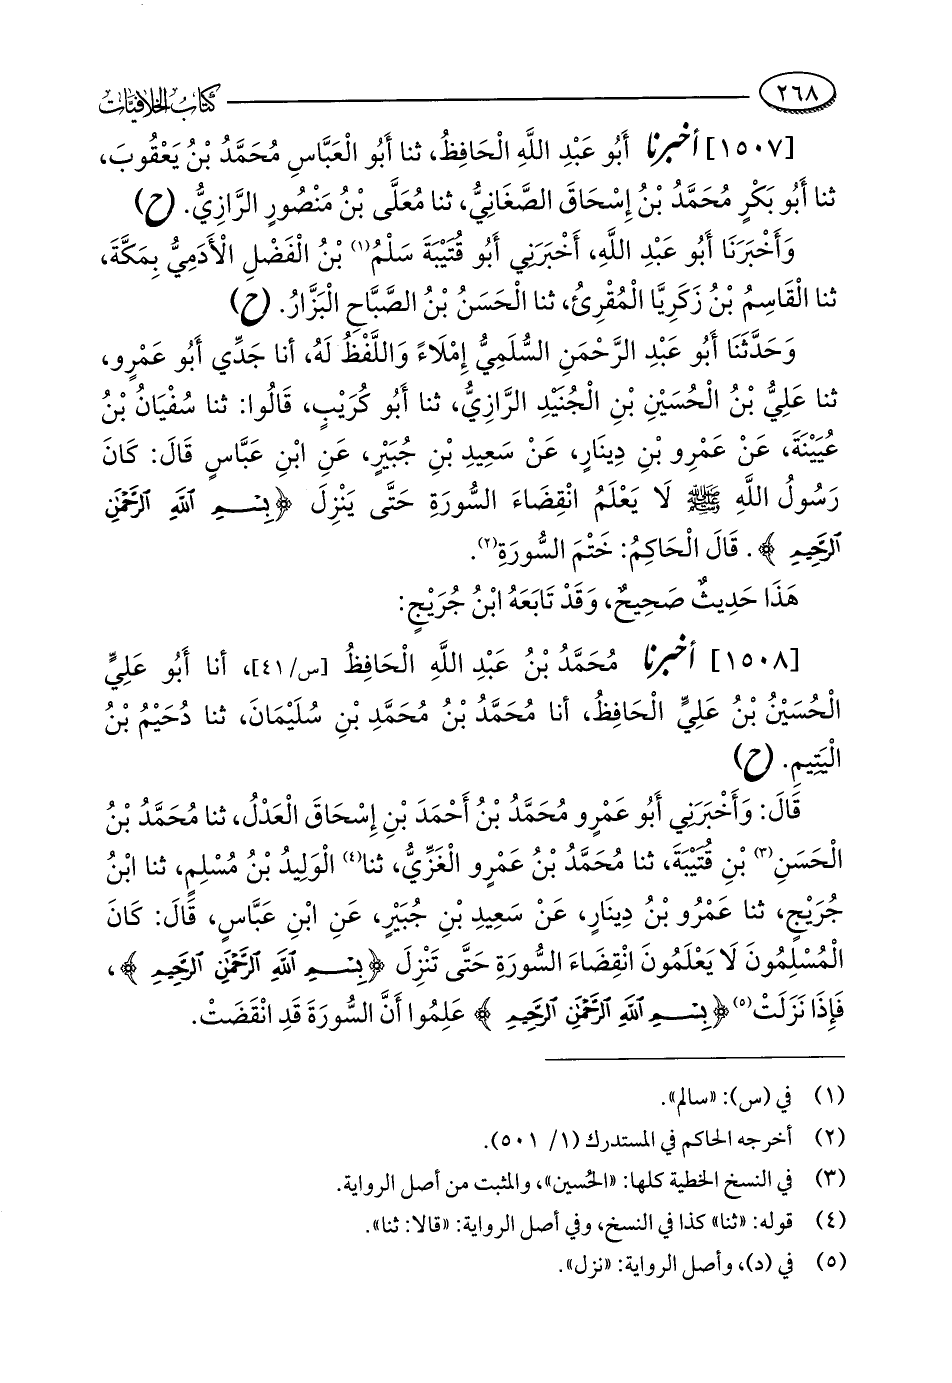 ٢٦٨ كتاب الخلافيات
[١٥٠٧] أخبرنا أَبُو عَبْدِ اللَّهِ الْحَافِظُ، ثنا أَبُو الْعَبَّاسِ مُحَمَّدُ بْنُ يَعْقُوبَ،
ثنا أَبُو بَكْرٍ مُحَمَّدُ بْنُ إِسْحَاقَ الصَّغَانِيُّ، ثنا مُعَلَّى بْنُ مَنْصُورٍ الرَّازِيُّ. (ح)
وَأَخْبَرَنَا أَبُو عَبْدِ اللَّهِ، أَخْبَرَنِي أَبُو قُتَيْبَةَ سَلْمُ(١) بْنُ الْفَضْلِ الْأَدَمِيُّ بِمَكَّةَ،
ثنا الْقَاسِمُ بْنُ زَكَرِيَّا الْمُقْرِئُ، ثنا الْحَسَنُ بْنُ الصَّبَّاحِ الْبَزَّارُ. (ح)
وَحَدَّثَنَا أَبُو عَبْدِ الرَّحْمَنِ السُّلَمِيُّ إِمْلَاءً وَاللَّفْظُ لَهُ، أنا جَدِّي أَبُو عَمْرٍو،
ثنا عَلِيُّ بْنُ الْحُسَيْنِ بْنِ الْجُنَيْدِ الرَّازِيُّ، ثنا أَبُو كُرَيْبٍ، قَالُوا: ثنا سُفْيَانُ بْنُ
عُيَيْنَةَ، عَنْ عَمْرِو بْنِ دِينَارٍ، عَنْ سَعِيدِ بْنِ جُبَيْرٍ، عَنِ ابْنِ عَبَّاسٍ قَالَ: كَانَ
رَسُولُ اللَّهِ ﷺ لَا يَعْلَمُ انْقِضَاءَ السُّورَةِ حَتَّى يَنْزِلَ ﴿بِسْمِ ٱللَّهِ ٱلرَّحْمَٰنِ
ٱلرَّحِيمِ﴾. قَالَ الْحَاكِمُ: خَتْمَ السُّورَةِ(٢).
هَذَا حَدِيثٌ صَحِيحٌ، وَقَدْ تَابَعَهُ ابْنُ جُرَيْجٍ:
[١٥٠٨] أخبرنا مُحَمَّدُ بْنُ عَبْدِ اللَّهِ الْحَافِظُ [س/٤١]، أنا أَبُو عَلِيٍّ
الْحُسَيْنُ بْنُ عَلِيٍّ الْحَافِظُ، أنا مُحَمَّدُ بْنُ مُحَمَّدِ بْنِ سُلَيْمَانَ، ثنا دُحَيْمُ بْنُ
الْيَتِيمِ. (ح)
قَالَ: وَأَخْبَرَنِي أَبُو عَمْرٍو مُحَمَّدُ بْنُ أَحْمَدَ بْنِ إِسْحَاقَ الْعَدْلُ، ثنا مُحَمَّدُ بْنُ
الْحَسَنِ(٣) بْنِ قُتَيْبَةَ، ثنا مُحَمَّدُ بْنُ عَمْرٍو الْغَزِّيُّ، ثنا(٤) الْوَلِيدُ بْنُ مُسْلِمٍ، ثنا ابْنُ
جُرَيْجٍ، ثنا عَمْرُو بْنُ دِينَارٍ، عَنْ سَعِيدِ بْنِ جُبَيْرٍ، عَنِ ابْنِ عَبَّاسٍ، قَالَ: كَانَ
الْمُسْلِمُونَ لَا يَعْلَمُونَ انْقِضَاءَ السُّورَةِ حَتَّى تَنْزِلَ ﴿بِسْمِ ٱللَّهِ ٱلرَّحْمَٰنِ ٱلرَّحِيمِ﴾،
فَإِذَا نَزَلَتْ(٥) ﴿بِسْمِ ٱللَّهِ ٱلرَّحْمَٰنِ ٱلرَّحِيمِ﴾ عَلِمُوا أَنَّ السُّورَةَ قَدِ انْقَضَتْ.
(١) في (س): «سالم».
(٢) أخرجه الحاكم في المستدرك (١/ ٥٠١).
(٣) في النسخ الخطية كلها: «الحُسين»، والمثبت من أصل الرواية.
(٤) قوله: «ثنا» كذا في النسخ، وفي أصل الرواية: «قالا: ثنا».
(٥) في (د)، وأصل الرواية: «نزل».